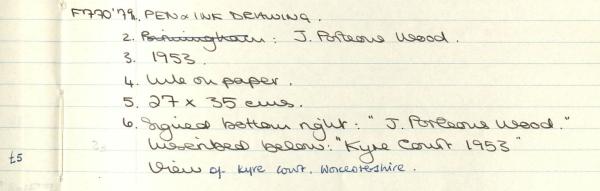 F770'79. PEN & INK DRAWING.
2. Birmingham: J. Porteous Wood.
3. 1953.
4. Ink on paper.
5. 27 x 35 cms.
6. Signed bottom right: "J. Porteous Wood."
Inscribed below: "Kyre Court 1953"
View of Kyre Court, Worcestershire.
£5